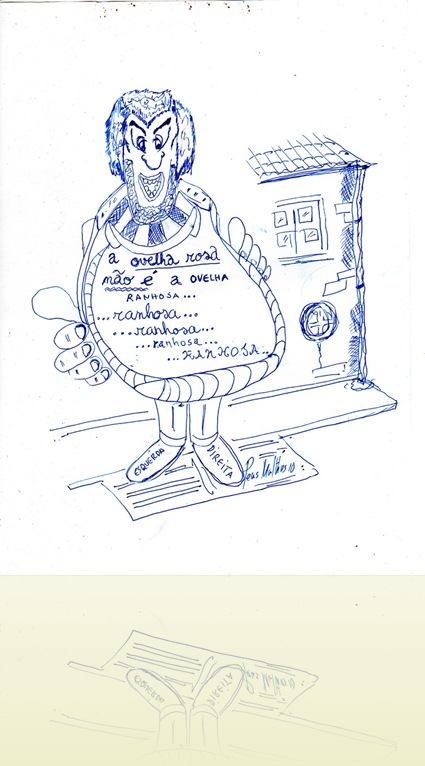 a ovelha rosa
não é a OVELHA
RANHOSA...
...ranhosa...
...ranhosa...
...ranhosa...
...RANHOSA...
ESQUERDA
DIREITA